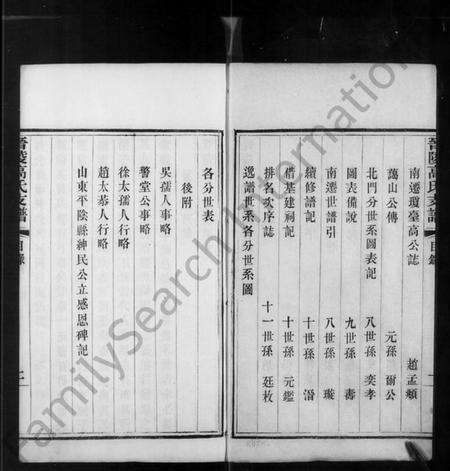 晉陵高氏支譜 目錄
南遷瓊臺高公誌 趙孟頫
蕩山公傳 元孫 爾公
北門分世系圖表記 八世孫 奕孝
圖表備說 九世孫 壽
南遷世譜引 八世孫 璇
續修譜記 十世孫 滑
借基建祠記 十世孫 元鑑
排名次序誌 十一世孫 廷枚
逸譜世系各分世系圖
各分世表
後附
吳孺人事略
警堂公事略
徐太孺人行略
趙太恭人行略
山東平陰縣紳民公立感恩碑記
晉陵高氏支譜 目錄
FamilySearch International